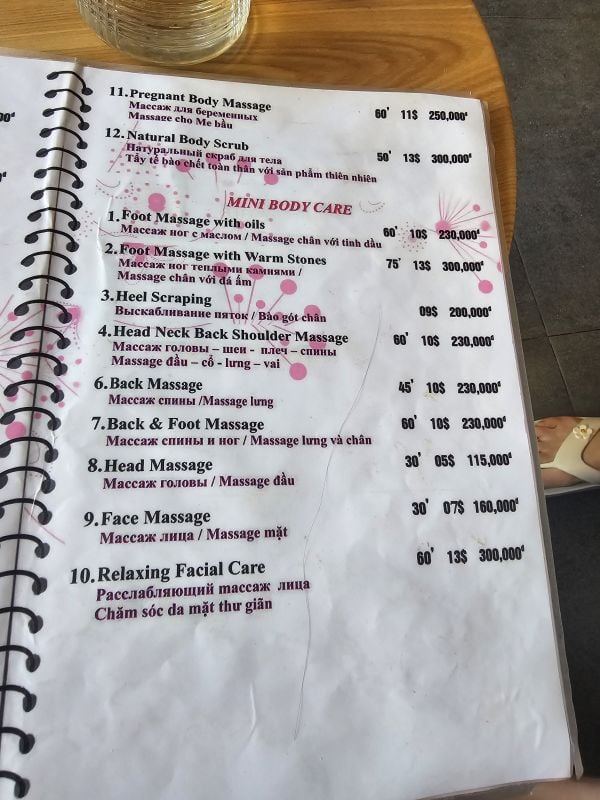 11. Pregnant Body Massage 60' 11$ 250,000đ
Массаж для беременных
Massage cho Me bầu
12. Natural Body Scrub 50' 13$ 300,000đ
Натуральный скраб для тела
Tẩy tế bào chết toàn thân với sản phẩm thiên nhiên
MINI BODY CARE
1. Foot Massage with oils 60' 10$ 230,000đ
Массаж ног с маслом / Massage chân với tinh dầu
2. Foot Massage with Warm Stones 75' 13$ 300,000đ
Массаж ног теплыми камнями /
Massage chân với đá ấm
3. Heel Scraping 09$ 200,000đ
Выскабливание пяток / Bào gót chân
4. Head Neck Back Shoulder Massage 60' 10$ 230,000đ
Массаж головы – шеи - плеч – спины
Massage đầu – cổ - lưng – vai
6. Back Massage 45' 10$ 230,000đ
Массаж спины /Massage lưng
7. Back & Foot Massage 60' 10$ 230,000đ
Массаж спины и ног / Massage lưng và chân
8. Head Massage 30' 05$ 115,000đ
Массаж головы / Massage đầu
9. Face Massage 30' 07$ 160,000đ
Массаж лица / Massage mặt
10. Relaxing Facial Care 60' 13$ 300,000đ
Расслабляющий массаж лица
Chăm sóc da mặt thư giãn